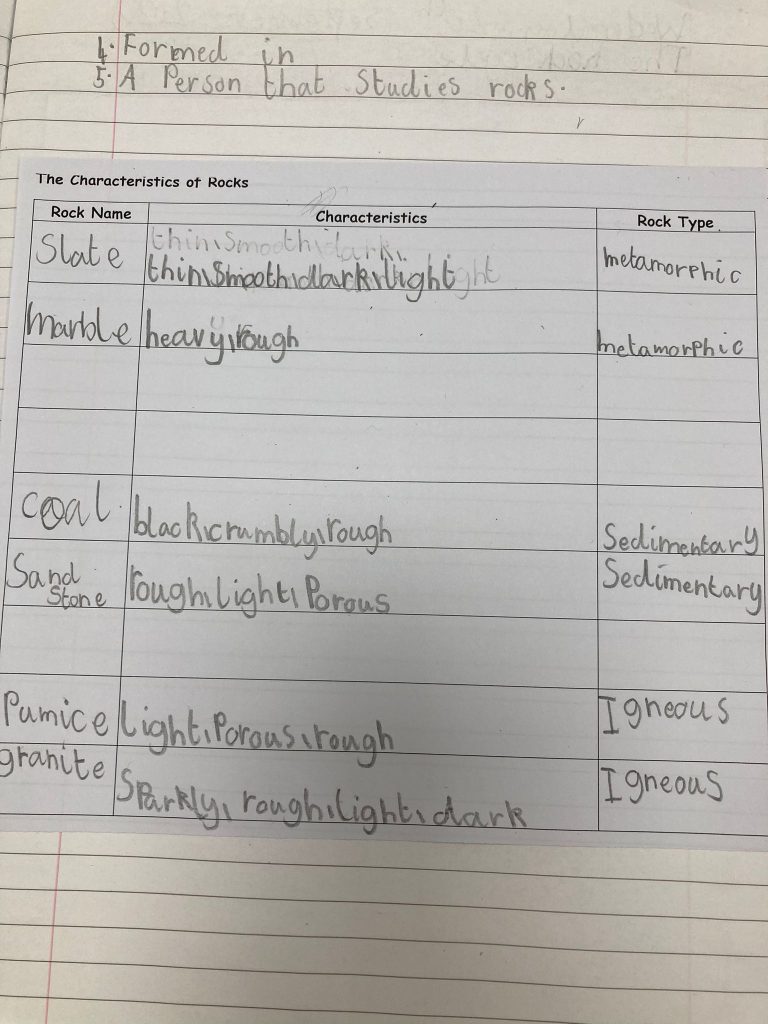 4. Formed in
5. A Person that Studies rocks.
The Characteristics of Rocks
Rock Name Characteristics Rock Type
Slate thin, Smooth, dark, light metamorphic
marble heavy, rough metamorphic
coal black, crumbly, rough Sedimentary
Sand
Stone rough, light, Porous Sedimentary
Pumice light, Porous, rough Igneous
granite Sparkly, rough, light, dark Igneous